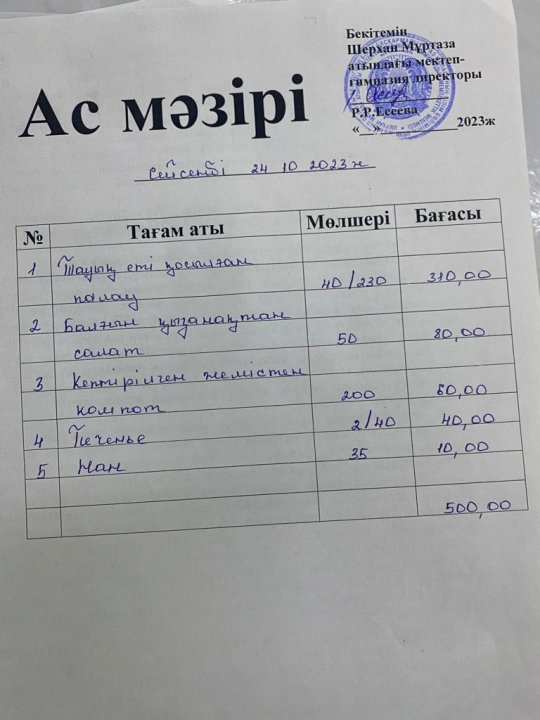 Бекітемін
Шерхан Мұртаза
атындағы мектеп-
гимназия директоры
Р.Р.Есеева
«__»__________2023ж
Ас мәзірі
Сейсенбі 24 10 2023 ж
№ Тағам аты Мөлшері Бағасы
1 Тауық еті қосылған
палау 40/230 310,00
2 Балғын қызанақтан
салат 50 80,00
3 Кептірілген жемістен
компот 200 60,00
4 Печенье 2/40 40,00
5 Нан 35 10,00
500,00